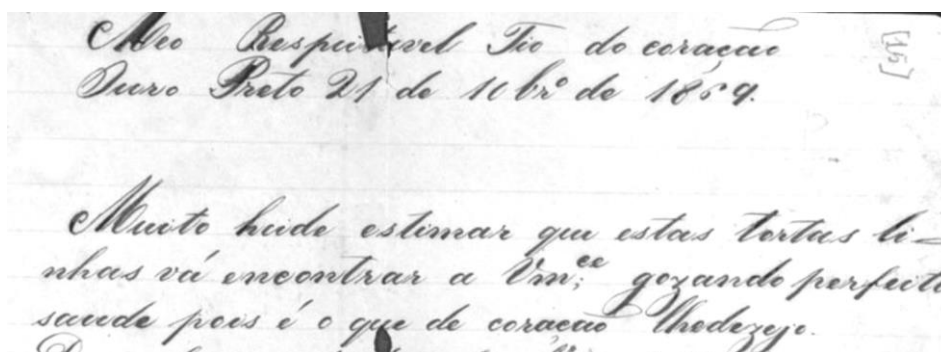 Meo Respeitavel Tio do coração
[15]
Ouro Preto 21 de 10br.º de 1869.
Muito heide estimar que estas tortas li=
nhas vá encontrar a Vm.ce gozando perfeita
saude pois é o que de coração lhedezejo.